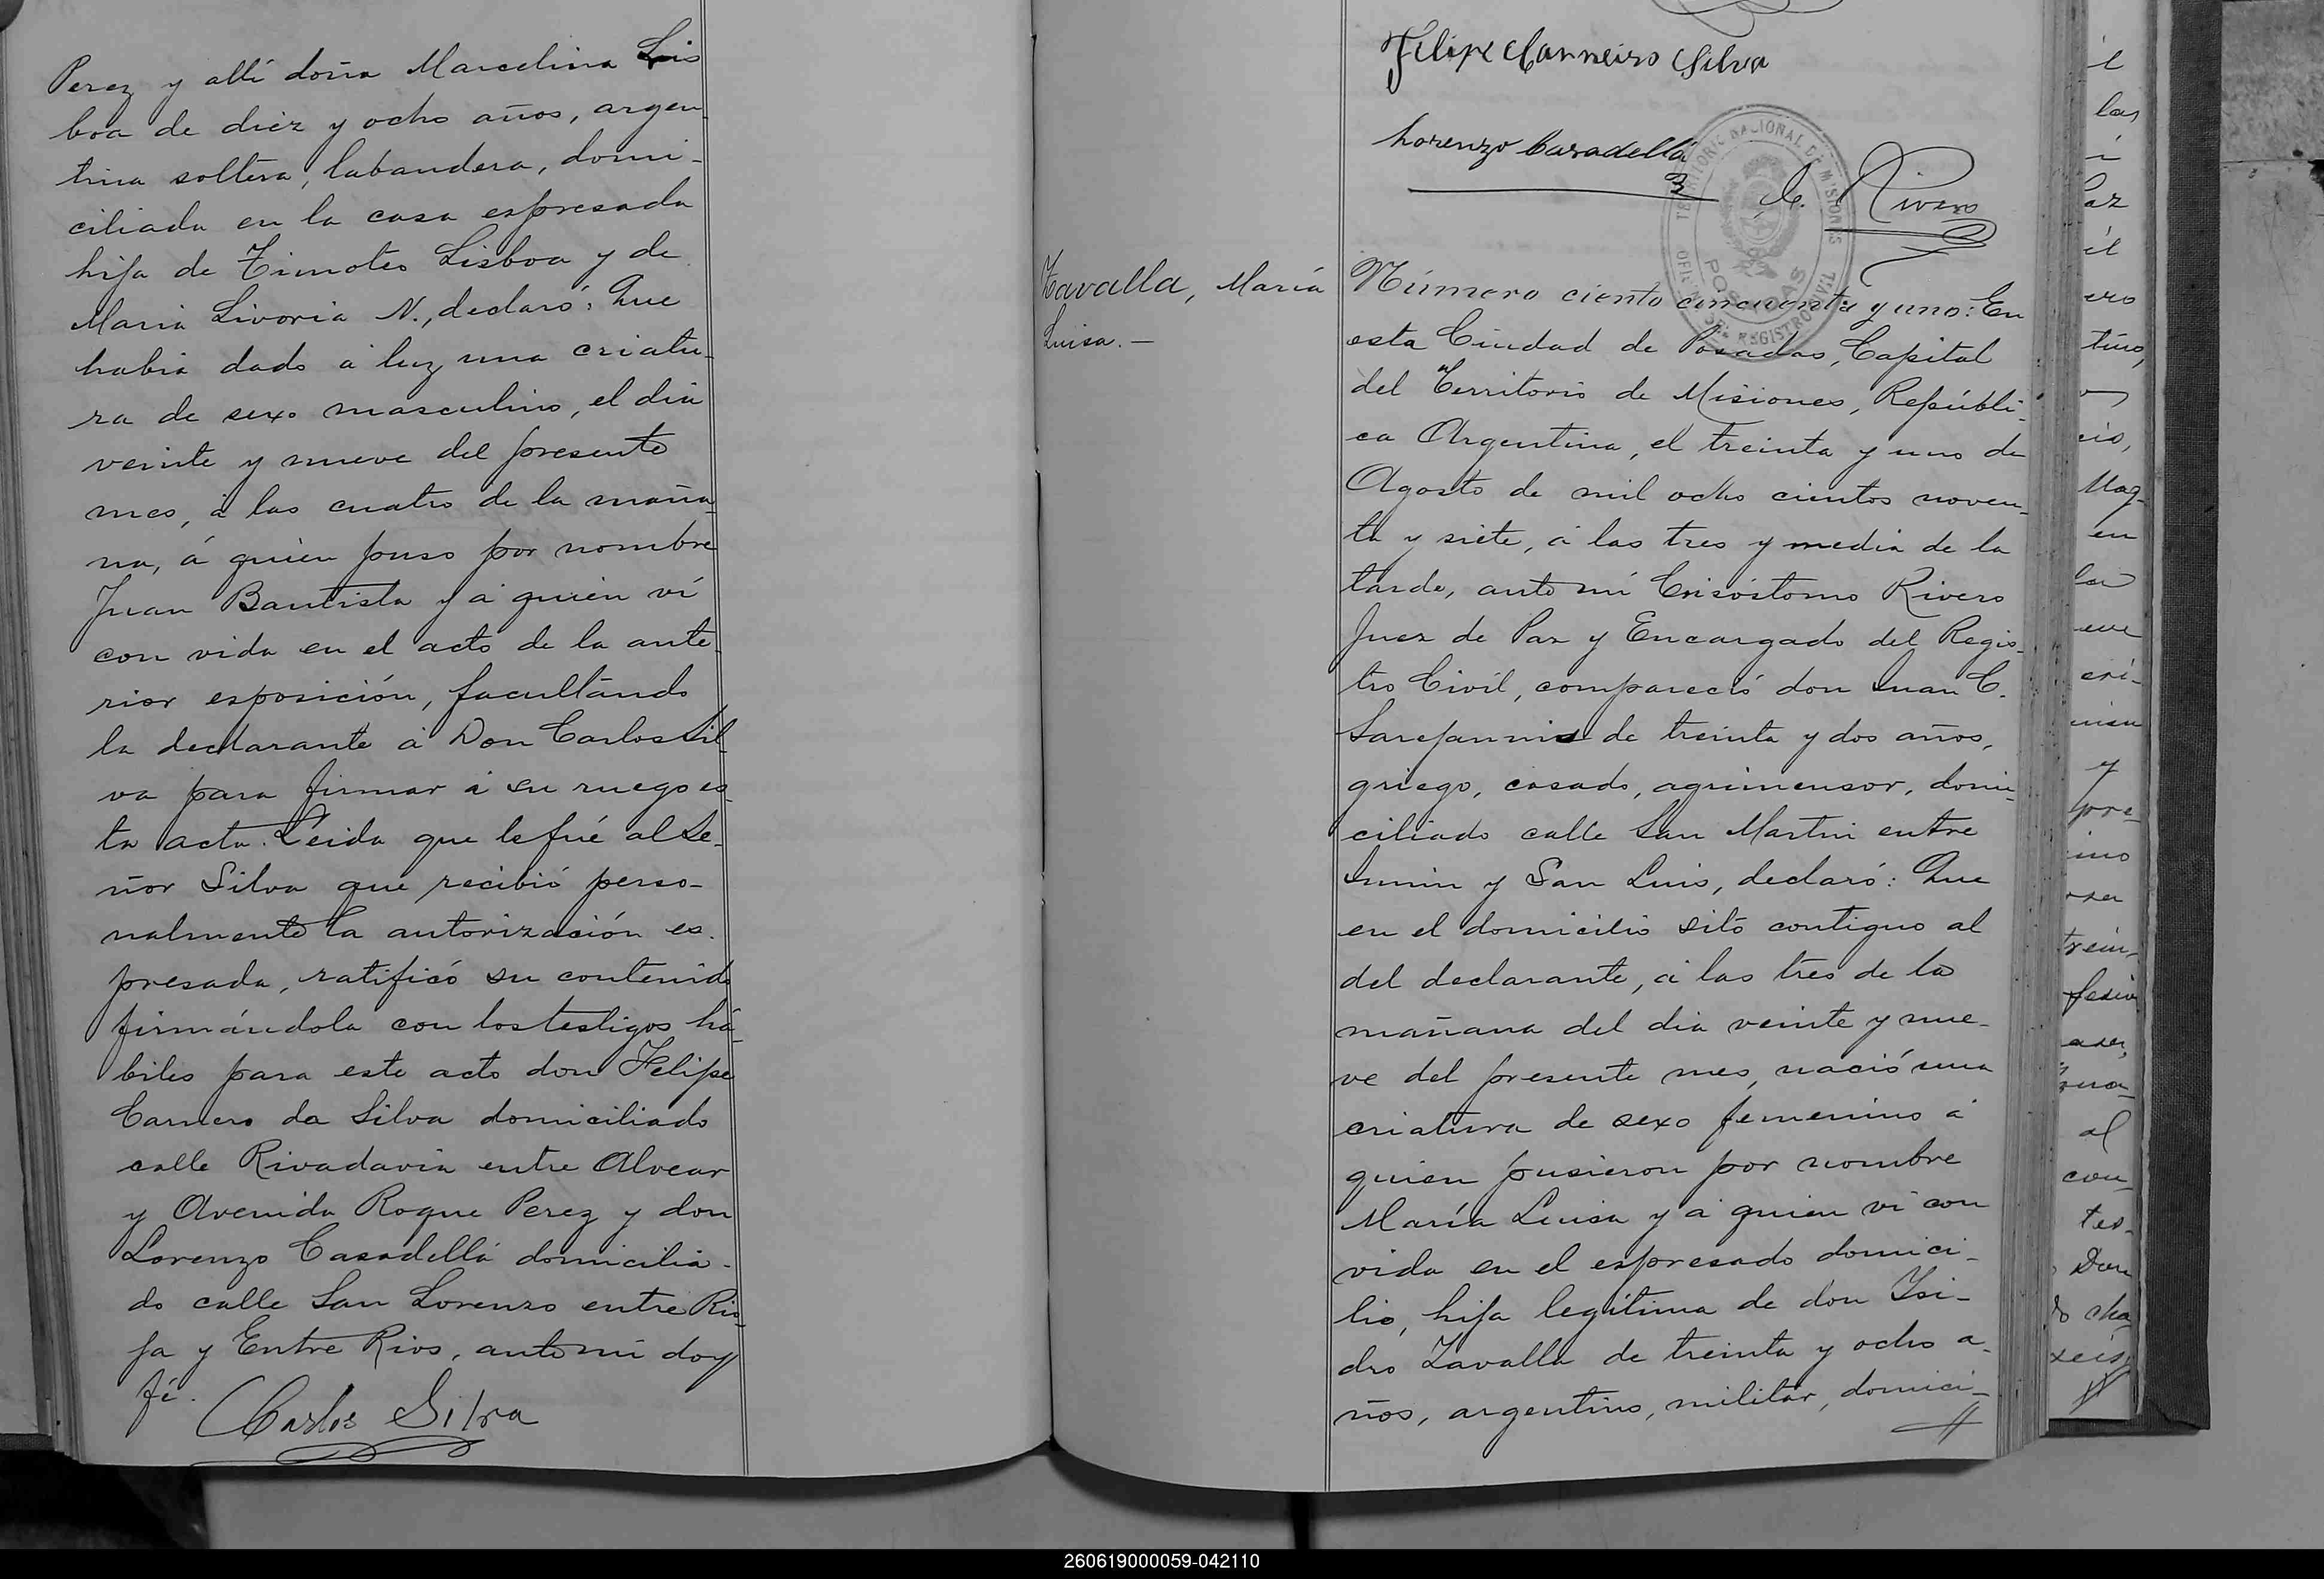 Perez y allí doña Marcelina Lis
boa de diez y ocho años, argen
tina soltera, labandera, domi-
ciliada en la casa espresada
hija de Timoteo Lisboa y de
Maria Livoria N., declaró: Que
habia dado á luz una criatu-
ra de sexo masculino, el dia
veinte y nueve del presente
mes, á las cuatro de la maña
na, á quien puso por nombre
Juan Bautista y á quien ví
con vida en el acto de la ante
rior esposición, facultando
la declarante á Don Carlos Sil
va para firmar á su ruego es-
ta acta. Leida que le fué al Se-
ñor Silva que recibió perso-
nalmente la autorización es-
presada, ratificó su contenido
firmándola con los testigos há-
biles para este acto don Felipe
Carnero da Silva domiciliado
calle Rivadavia entre Alvear
y Avenida Roque Perez y don
Lorenzo Casadellá domicilia-
do calle San Lorenzo entre Rio-
ja y Entre Rios, ante mi doy
fé.
Carlos Silva
Felipe Carneiro Silva
Lorenzo Casadellá
C. Rivero
TERRITORIO NACIONAL DE MISIONES
POSADAS
OFICINA DEL REGISTRO CIVIL
Zavalla, María
Luisa.-
Número ciento cincuenta y uno: En
esta Ciudad de Posadas, Capital
del Territorio de Misiones, Repúbli-
ca Argentina, el treinta y uno de
Agosto de mil ocho cientos noven-
ta y siete, á las tres y media de la
tarde, ante mí Crisóstomo Rivero
Juez de Paz y Encargado del Regis-
tro Civil, compareció don Juan C.
de treinta y dos años,
griego, casado, agrimensor, domi-
ciliado calle San Martin entre
Junin y San Luis, declaró: Que
en el domicilio sito contiguo al
del declarante, á las tres de la
mañana del dia veinte y nue-
ve del presente mes, nació una
criatura de sexo femenino á
quien pusieron por nombre
María Luisa y á quien ví con
vida en el espresado domici-
lio, hija legítima de don Isi-
dro Zavalla de treinta y ocho a-
ños, argentino, militar, domici-
260619000059-042110